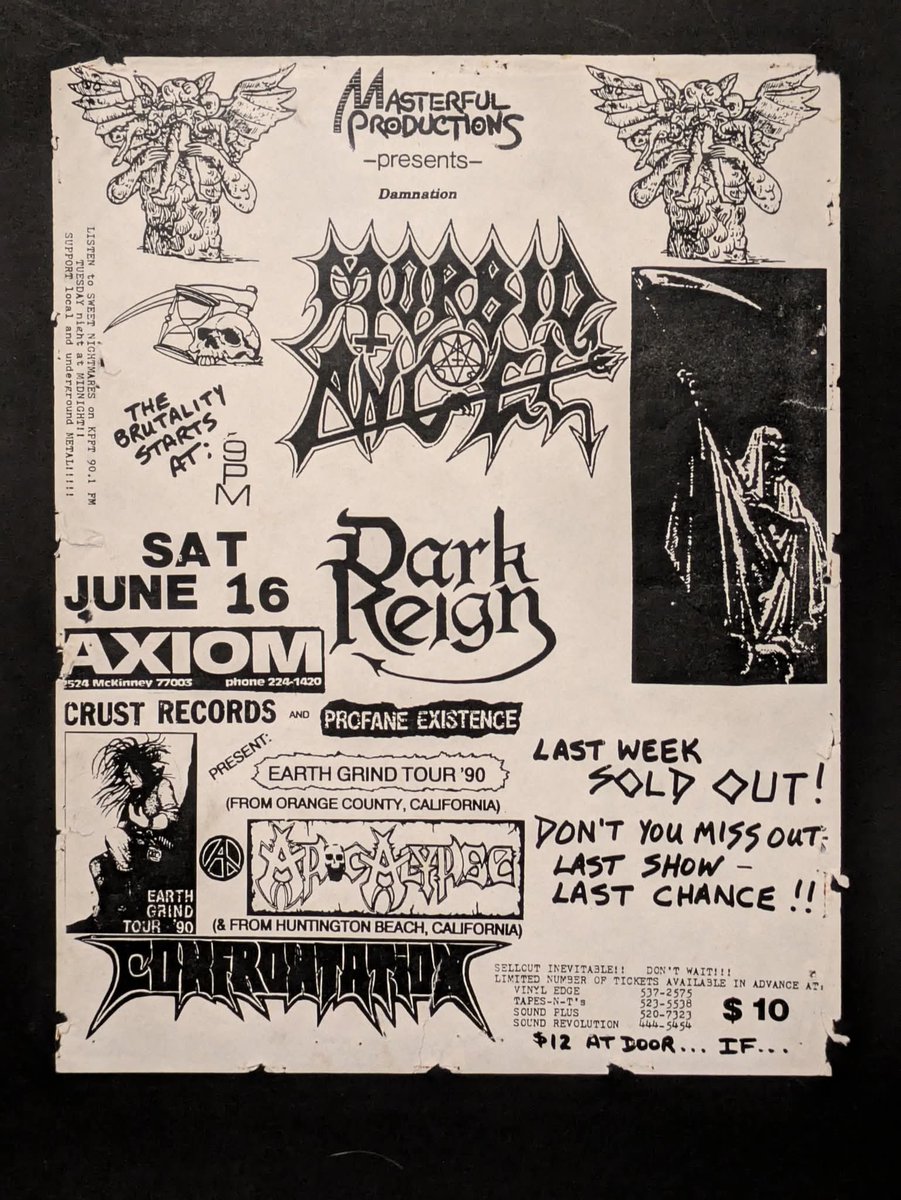 MASTERFUL
PRODUCTIONS
-presents-
Damnation
MORBID
ANGEL
LISTEN to SWEET NIGHTMARES on KPFT 90.1 FM
TUESDAY night at MIDNIGHT!!
SUPPORT local and underground METAL!!!!!
THE
BRUTALITY
STARTS
AT:
9PM
SAT
JUNE 16
AXIOM
2524 McKinney 77003 phone 224-1420
Dark
Reign
CRUST RECORDS AND PROFANE EXISTENCE
PRESENT:
EARTH GRIND TOUR '90
(FROM ORANGE COUNTY, CALIFORNIA)
APOCALYPSE
EARTH
GRIND
TOUR '90
(& FROM HUNTINGTON BEACH, CALIFORNIA)
CONFRONTATION
LAST WEEK
SOLD OUT!
DON'T YOU MISS OUT-
LAST SHOW -
LAST CHANCE !!
SELLOUT INEVITABLE!! DON'T WAIT!!!
LIMITED NUMBER OF TICKETS AVAILABLE IN ADVANCE AT:
VINYL EDGE 537-2575
TAPES-N-T's 523-5538
SOUND PLUS 520-7323
SOUND REVOLUTION 444-5454
$10
$12 AT DOOR... IF...